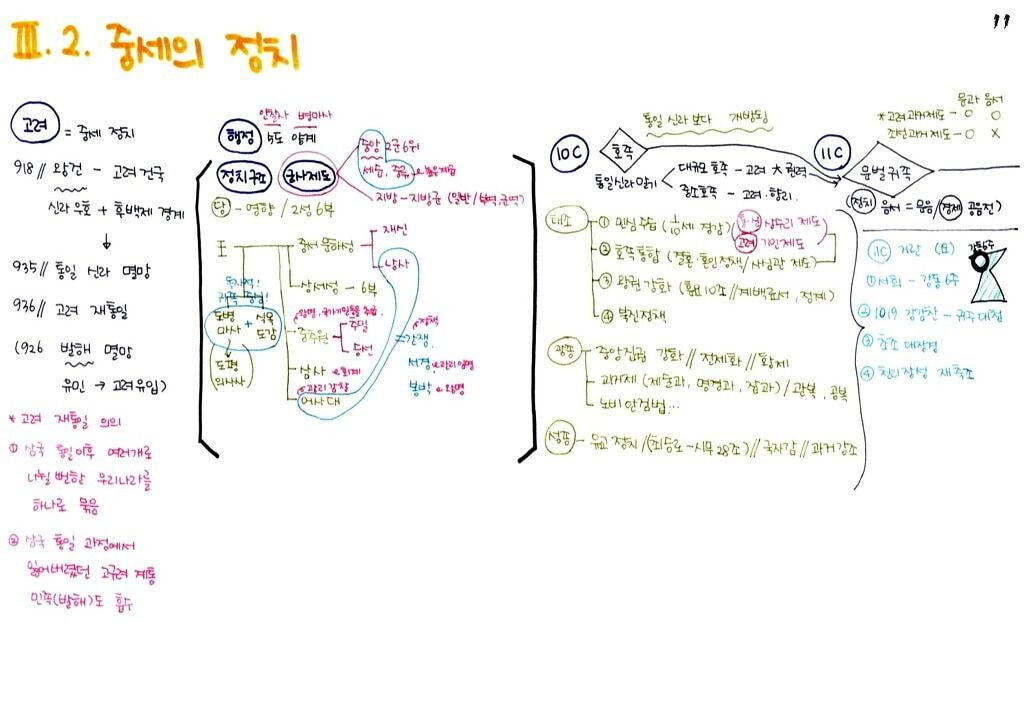 11
Ⅲ.2. 중세의 정치
고려 = 중세 정치
918// 왕건 - 고려 건국
신라 우호 + 후백제 경계
↓
935// 통일 신라 멸망
936// 고려 재통일
(926 발해 멸망
유민 → 고려 유입)
* 고려 재통일 의의
① 삼국 통일 이후 여러개로
나뉠 뻔한 우리나라를
하나로 묶음
② 삼국 통일 과정에서
잃어버렸던 고구려 계통
민족(발해)도 흡수
안찰사 병마사
행정 5도 양계
정치구조 군사제도
중앙 2군 6위
세습, 중류
지방 - 지방군 (일반/
당 - 영향 / 2성 6부
王
중서문하성
재신
낭사
상서성 - 6부
독자적!
도병마사 + 식목도감
도평의사사
중추원
추밀
승선
삼사 회계
관리감찰
어사대
정책
= 간쟁,
서경
봉박
왕명
10C 호족
통일신라 말기
통일 신라 보다 개방됨
대규모 호족 - 고려 大 권력
중소호족 - 고려. 향리.
11C 문벌귀족
문과 음서
* 고려 과거제도 - O O
조선 과거제도 - O X
(정치 음서 = 문음/경제 공음전)
태조
① 민심 수습 (1/10세 경감)
통·신 상수리 제도
고려 기인제도
② 호족통합 (결혼·혼인정책/사심관 제도)
③ 왕권 강화 (훈요10조 // 계백료서, 정계)
④ 북진정책
광종
중앙집권 강화 // 전제화 // 황제
과거제 (제술과, 명경과, 잡과) / 관복, 공복
노비안검법...
성종 - 유교 정치 /(최승로-시무28조) // 국자감 // 과거 강조
11C 거란 (요)
강동6주
① 서희 - 강동 6주
② 1019 강감찬 - 귀주대첩
③ 초조 대장경
④ 천리장성 재축조